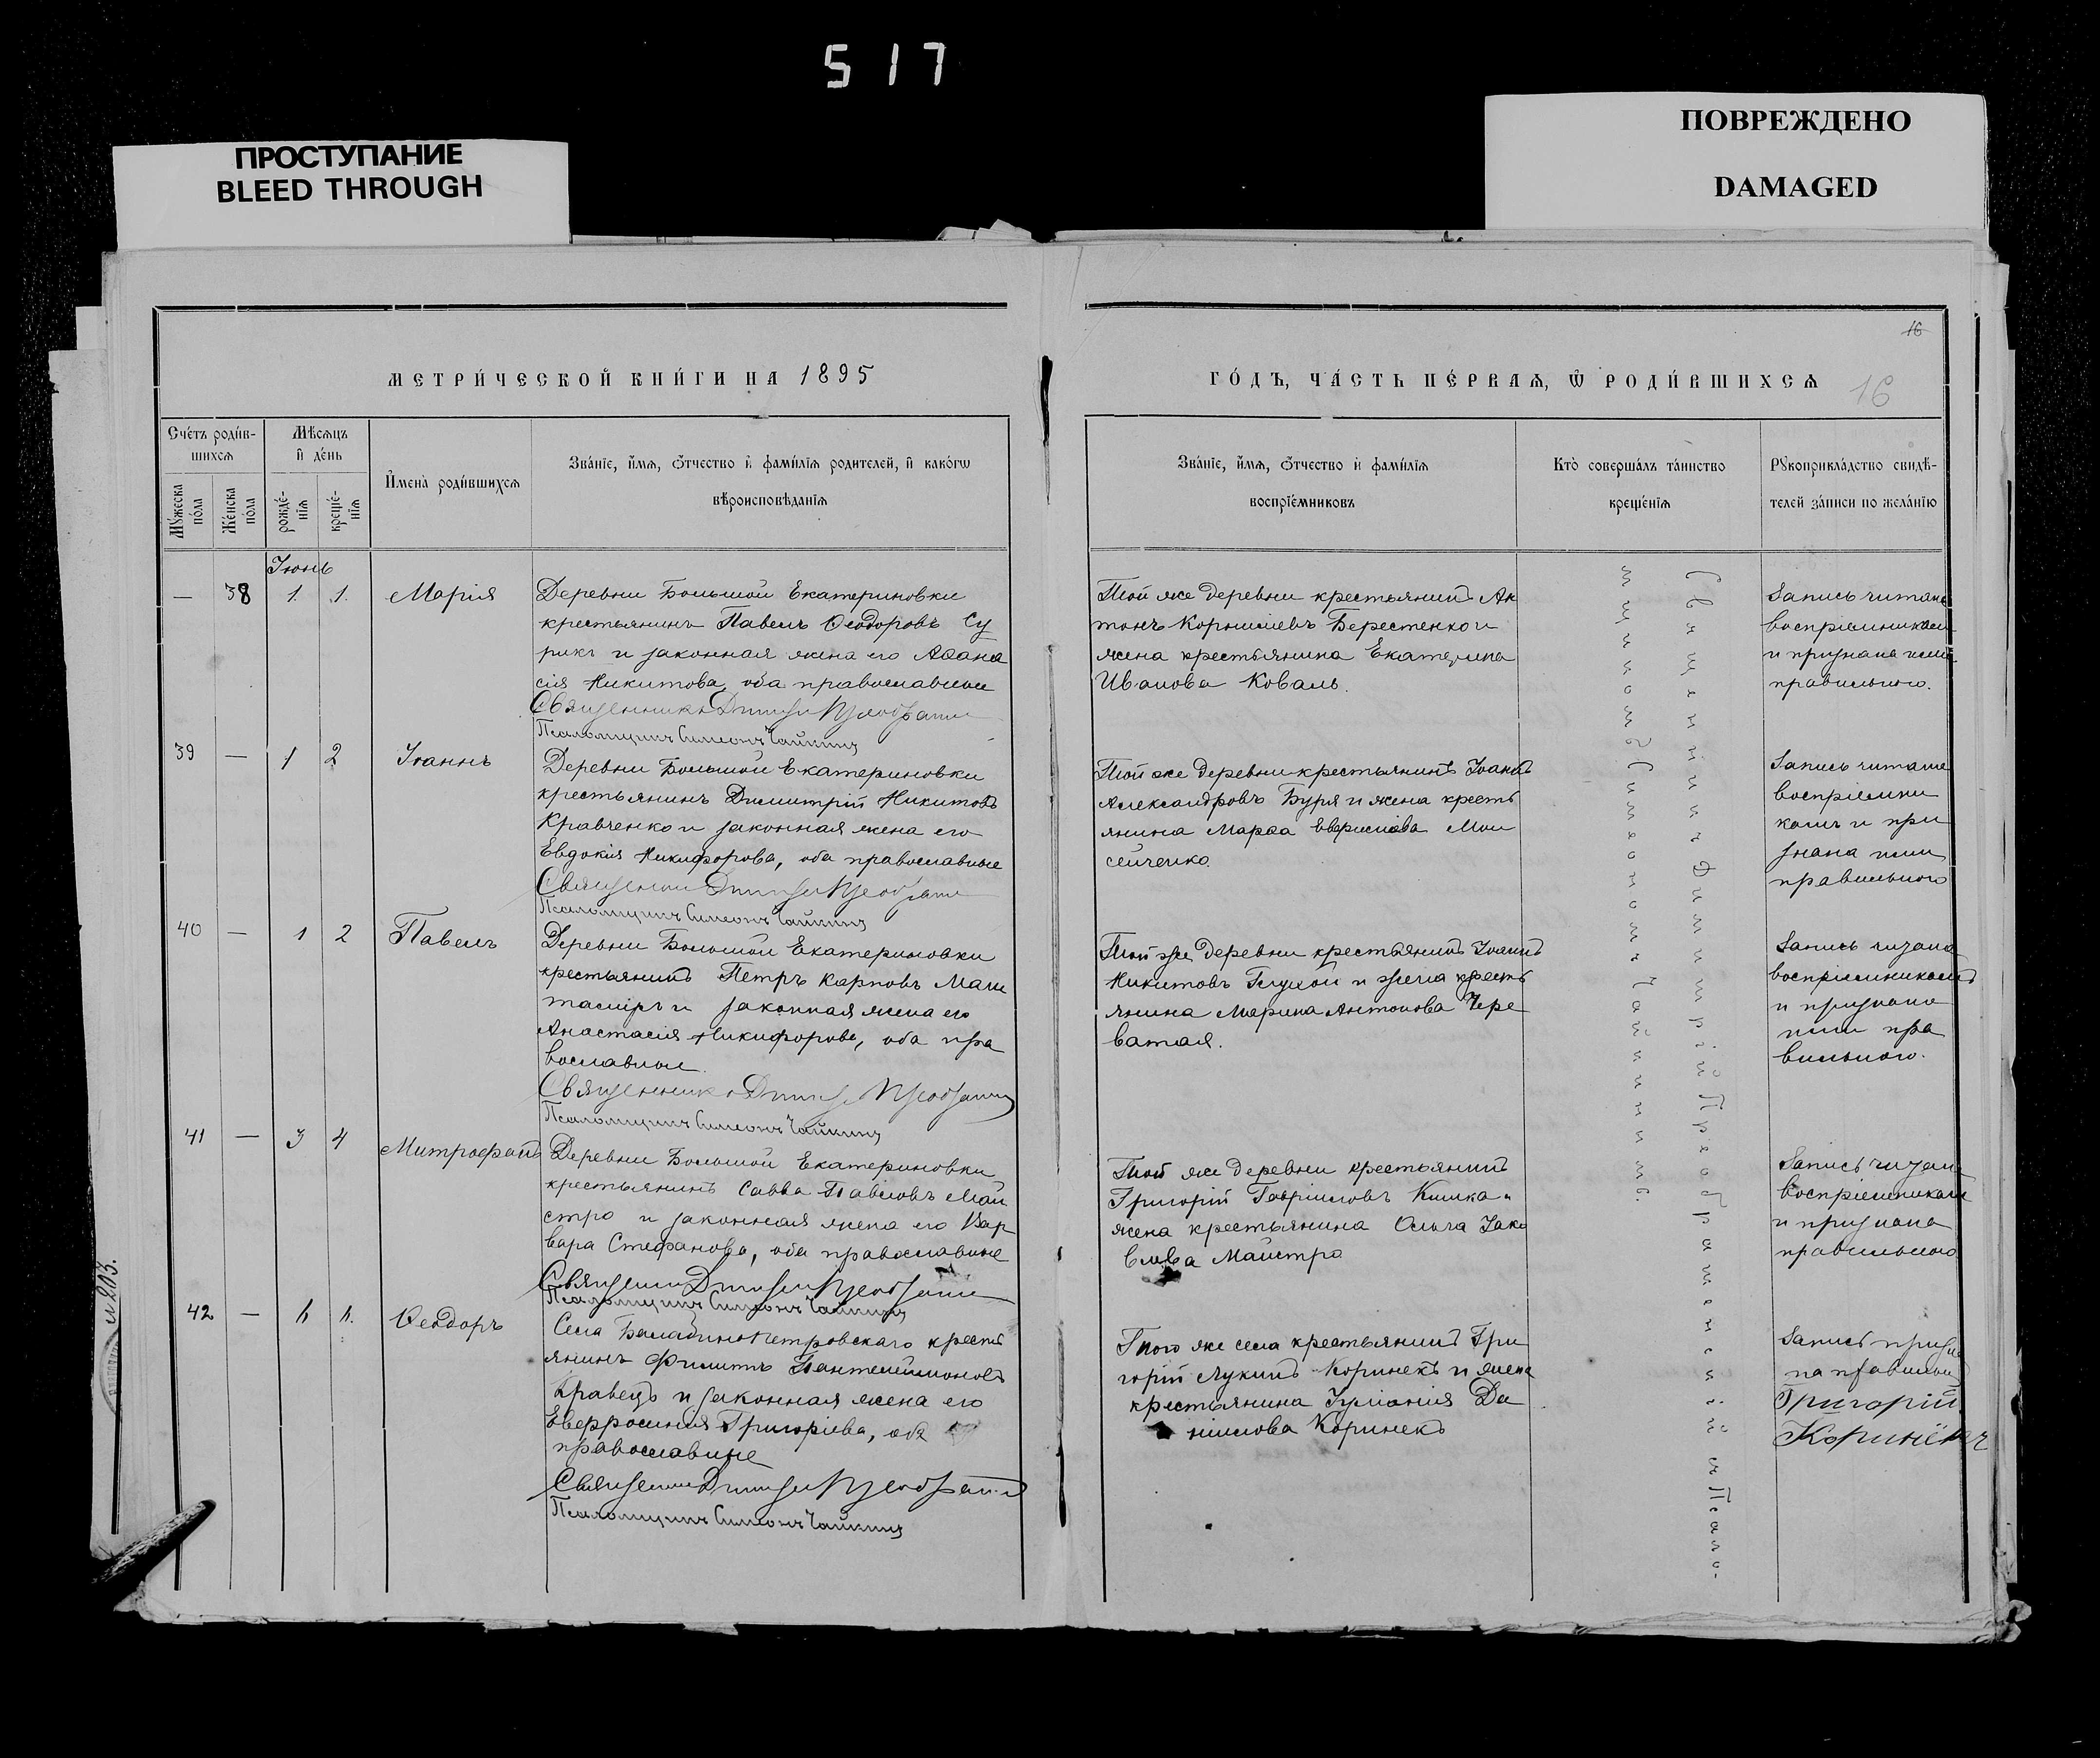 517
ПРОСТУПАНИЕ
BLEED THROUGH
ПОВРЕЖДЕНО
DAMAGED
16
МЕТРИ́ЧЕСКОЙ КНИ́ГИ НА 1895
ГО́ДЪ, ЧА́СТЬ ПЕ́РВАѦ, Ѡ РОДИ́ВШИХСѦ
16
Сче́тъ роди́в-
шихсѧ
Мѣ́сѧцъ
и де́нь
Имена̀ роди́вшихсѧ
Зва́нїе, и́мѧ, о́тчество и фами́лїѧ родителей, и како́гѡ
вѣроисповѣданїѧ
Зва́нїе, и́мѧ, о́тчество и фами́лїѧ
воспрїе́мниковъ
Кто̀ соверша́лъ та́инство
креще́нїѧ
Рꙋкоприкла́дство свидѣ́-
телей за́писи по жела́нїю
Мꙋ́жеска
по́ла
Же́нска
по́ла
рожде́-
нїѧ
креще́-
нїѧ
Іюнь
— 38 1. 1. Марія
Деревни Большой Екатериновки
крестьянинъ Павелъ Ѳеодоровъ Су
рикъ и законная жена его Аѳана
сія Никитова, оба православные
Священникъ Дмитрій Преображен
Псаломщикъ Симеонъ Чайкинъ
Той же деревни крестьянинъ Ан
тонъ Корнилиевъ Берестенко и
жена крестьянина Екатерина
Иванова Коваль.
Запись читана
воспріемникам
и признана ими
правильного.
39 — 1 2 Іоаннъ
Деревни Большой Екатериновки
крестьянинъ Димитрій Никитовъ
Кравченко и законная жена его
Евдокія Никифорова, оба православные
Священник Дмитрій Преображен
Псаломщикъ Симеонъ Чайкинъ
Той же деревни крестьянинъ Іоаннъ
Александровъ Буря и жена кресть
янина Марѳа Мои
сейченко.
Запись читана
воспріемни
камъ и при
знана ими
правильного
40 — 1 2 Павелъ
Деревни Большой Екатериновки
крестьянинъ Петръ Карповъ Маш
талиръ и законная жена его
Анастасія Никифорова, оба пра
вославные.
Священникъ Дмитрій Преображен
Псаломщикъ Симеонъ Чайкинъ
Той же деревни крестьянинъ Іоаннъ
Никитовъ Глухой и жена кресть
янина Марина Антонова Чере
ватая.
Запись читана
воспріемникамъ
и признана
ими пра
вильного.
41 — 3 4 Митрофанъ
Деревни Большой Екатериновки
крестьянинъ Савва Павловъ Май
стро и законная жена его Вар
вара Стефанова, оба православные
Священник Дмитрій Преображен
Псаломщикъ Симеонъ Чайкинъ
Той же деревни крестьянинъ
Григорій Гавріиловъ Кишка и
жена крестьянина Ольга Іако
влева Майстро
Запись читана
воспріемникам
и признана
правильного
42 — Ѳеодоръ
Села Баладино Петровскаго кресть
янинъ Филиппъ Пантелеимоновъ
Кравецъ и законная жена его
Евфросинія Григоріева, оба
православные
Священник Дмитрій Преображен
Псаломщикъ Симеонъ Чайкинъ
Того же села крестьянинъ Гри
горій Лукинъ Коринекъ и жена
крестьянина Іуліанія Да
ніилова Коринекъ
Запись призна
на правильно
Григорій
Коринекъ
Священникъ Димитрій Преображенскій и Псало-
мщикомъ Симеономъ Чайкинымъ.
№ 203.